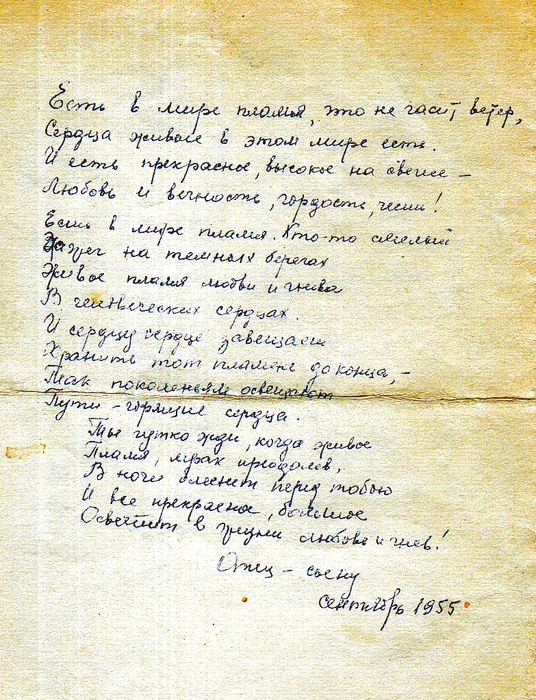 Есть в мире пламя, что не гасит ветер,
Сердца живые в этом мире есть.
И есть прекрасное, высокое на свете –
Любовь и вечность, гордость, честь!
Есть в мире пламя. Кто-то смелый
Зажег на темных берегах
Живое пламя любви и гнева
В человеческих сердцах.
И сердцу сердце завещает
Хранить тот пламень до конца, –
Так поколеньям освещают
Пути – горящие сердца.
Ты чутко жди, когда живое
Пламя, мрак преодолев,
В ночи блеснет перед тобою
И все прекрасное, большое
Осветит в жизни любовь и гнев!
Отец – сыну
Сентябрь 1955